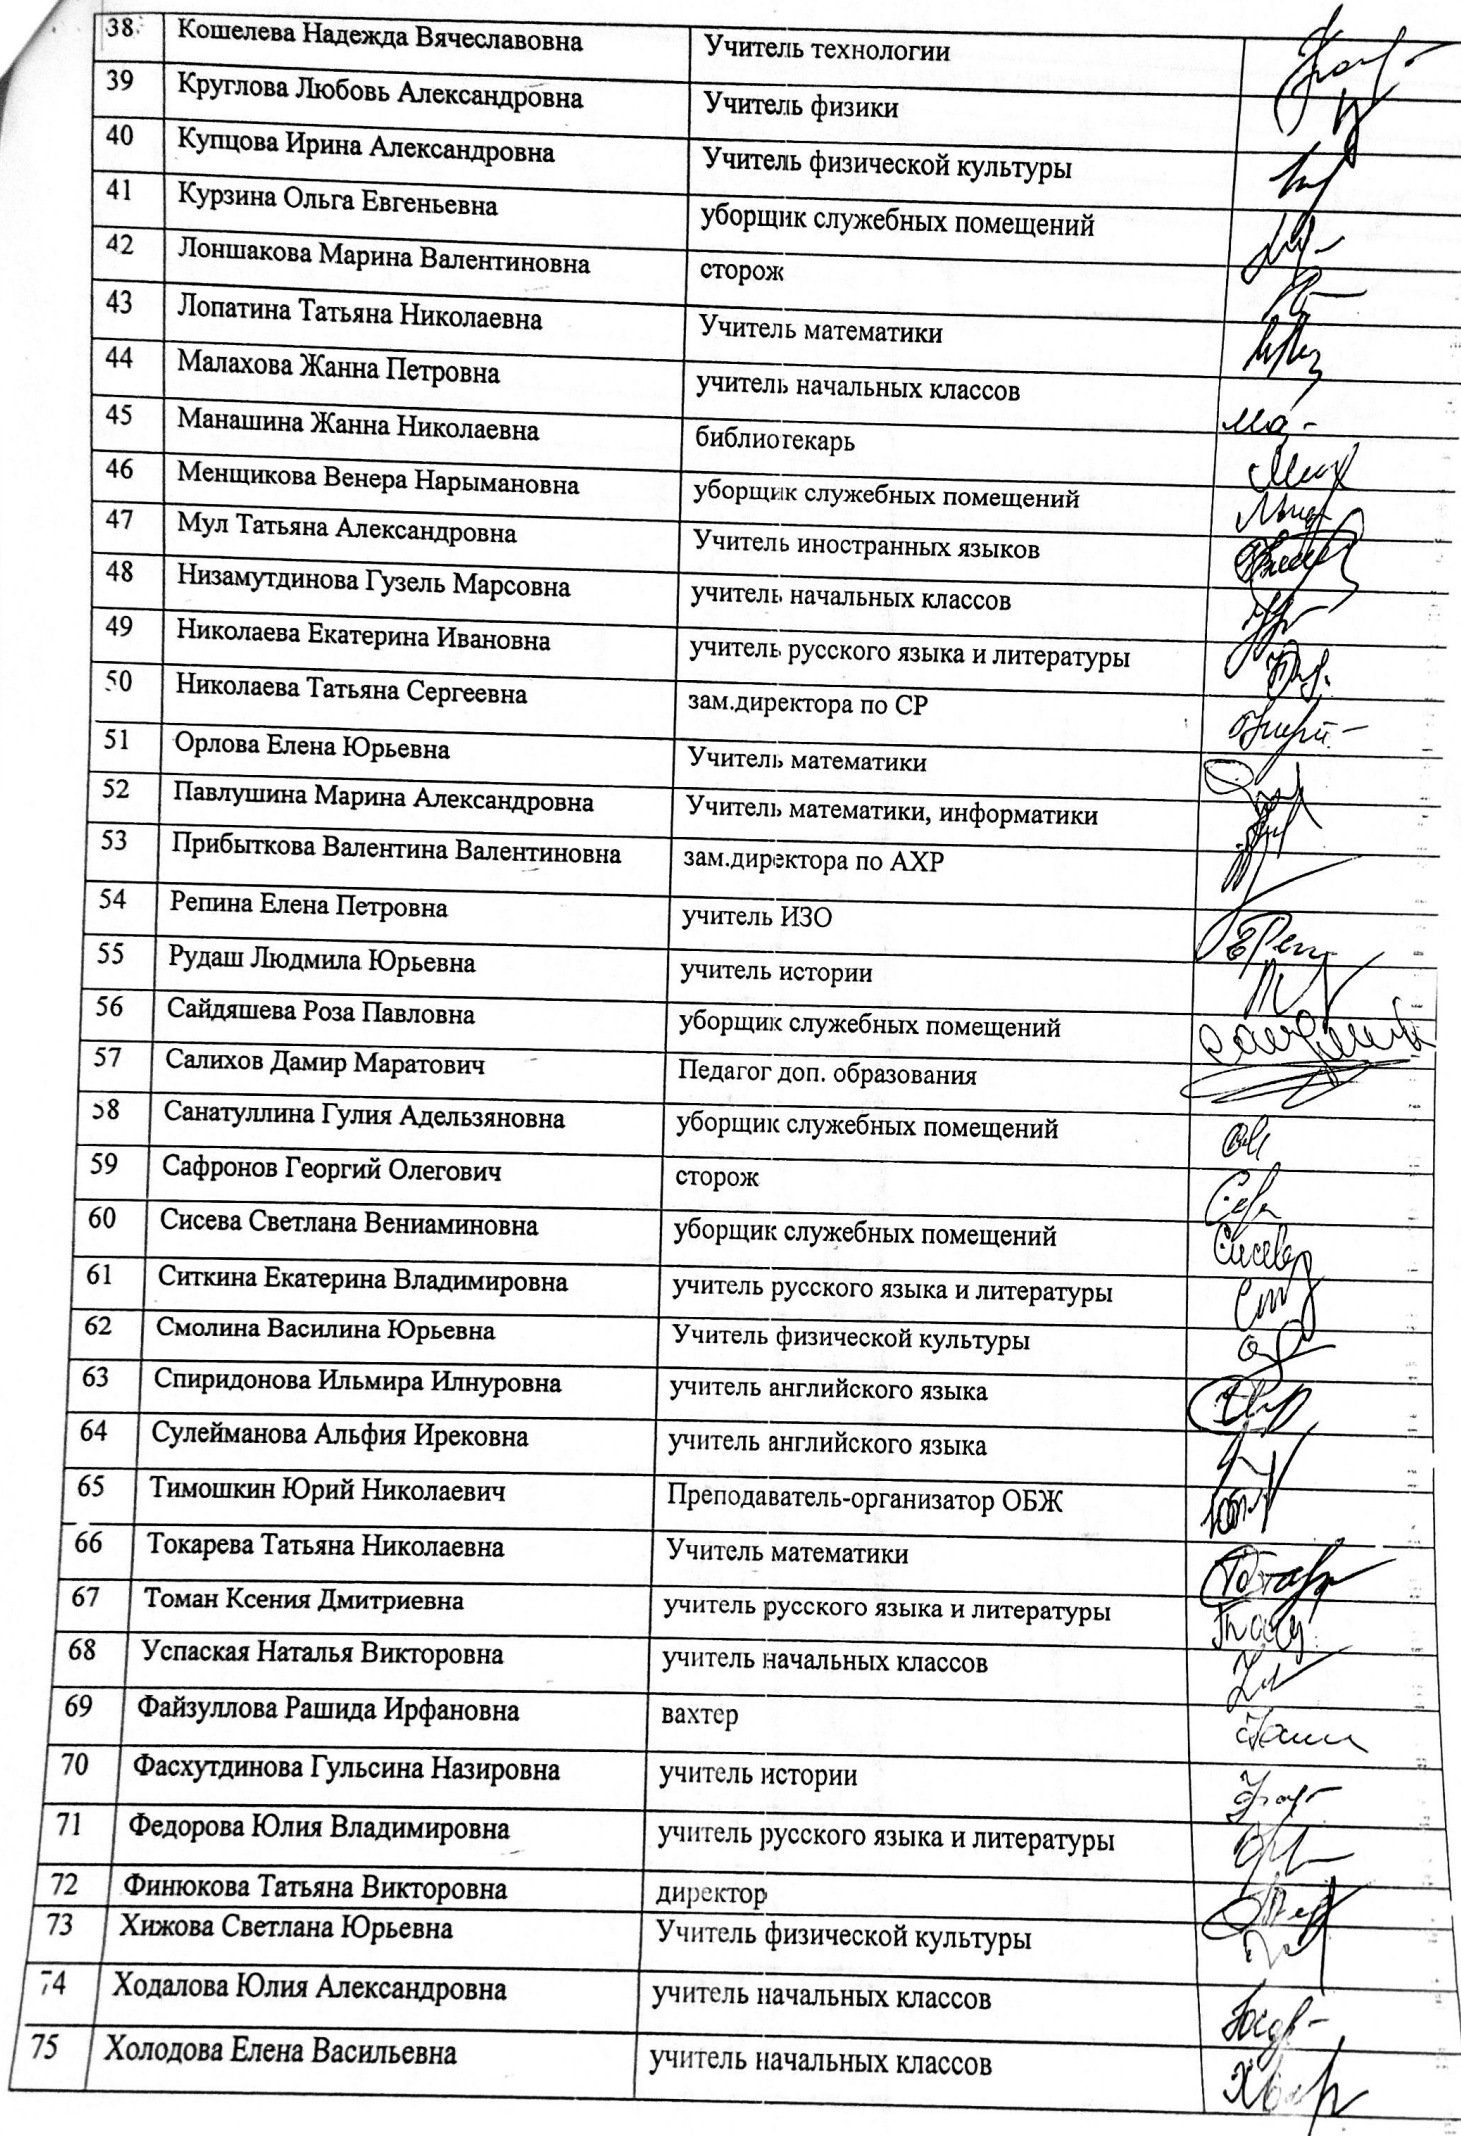 38 Кошелева Надежда Вячеславовна Учитель технологии
39 Круглова Любовь Александровна Учитель физики
40 Купцова Ирина Александровна Учитель физической культуры
41 Курзина Ольга Евгеньевна уборщик служебных помещений
42 Лоншакова Марина Валентиновна сторож
43 Лопатина Татьяна Николаевна Учитель математики
44 Малахова Жанна Петровна учитель начальных классов
45 Манашина Жанна Николаевна библиотекарь
46 Менщикова Венера Нарымановна уборщик служебных помещений
47 Мул Татьяна Александровна Учитель иностранных языков
48 Низамутдинова Гузель Марсовна учитель начальных классов
49 Николаева Екатерина Ивановна учитель русского языка и литературы
50 Николаева Татьяна Сергеевна зам.директора по СР
51 Орлова Елена Юрьевна Учитель математики
52 Павлушина Марина Александровна Учитель математики, информатики
53 Прибыткова Валентина Валентиновна зам.директора по АХР
54 Репина Елена Петровна учитель ИЗО
55 Рудаш Людмила Юрьевна учитель истории
56 Сайдяшева Роза Павловна уборщик служебных помещений
57 Салихов Дамир Маратович Педагог доп. образования
58 Санатуллина Гулия Адельзяновна уборщик служебных помещений
59 Сафронов Георгий Олегович сторож
60 Сисева Светлана Вениаминовна уборщик служебных помещений Сисева
61 Ситкина Екатерина Владимировна учитель русского языка и литературы
62 Смолина Василина Юрьевна Учитель физической культуры
63 Спиридонова Ильмира Илнуровна учитель английского языка
64 Сулейманова Альфия Ирековна учитель английского языка
65 Тимошкин Юрий Николаевич Преподаватель-организатор ОБЖ
66 Токарева Татьяна Николаевна Учитель математики
67 Томан Ксения Дмитриевна учитель русского языка и литературы
68 Успаская Наталья Викторовна учитель начальных классов
69 Файзуллова Рашида Ирфановна вахтер
70 Фасхутдинова Гульсина Назировна учитель истории
71 Федорова Юлия Владимировна учитель русского языка и литературы
72 Финюкова Татьяна Викторовна директор
73 Хижова Светлана Юрьевна Учитель физической культуры
74 Ходалова Юлия Александровна учитель начальных классов
75 Холодова Елена Васильевна учитель начальных классов